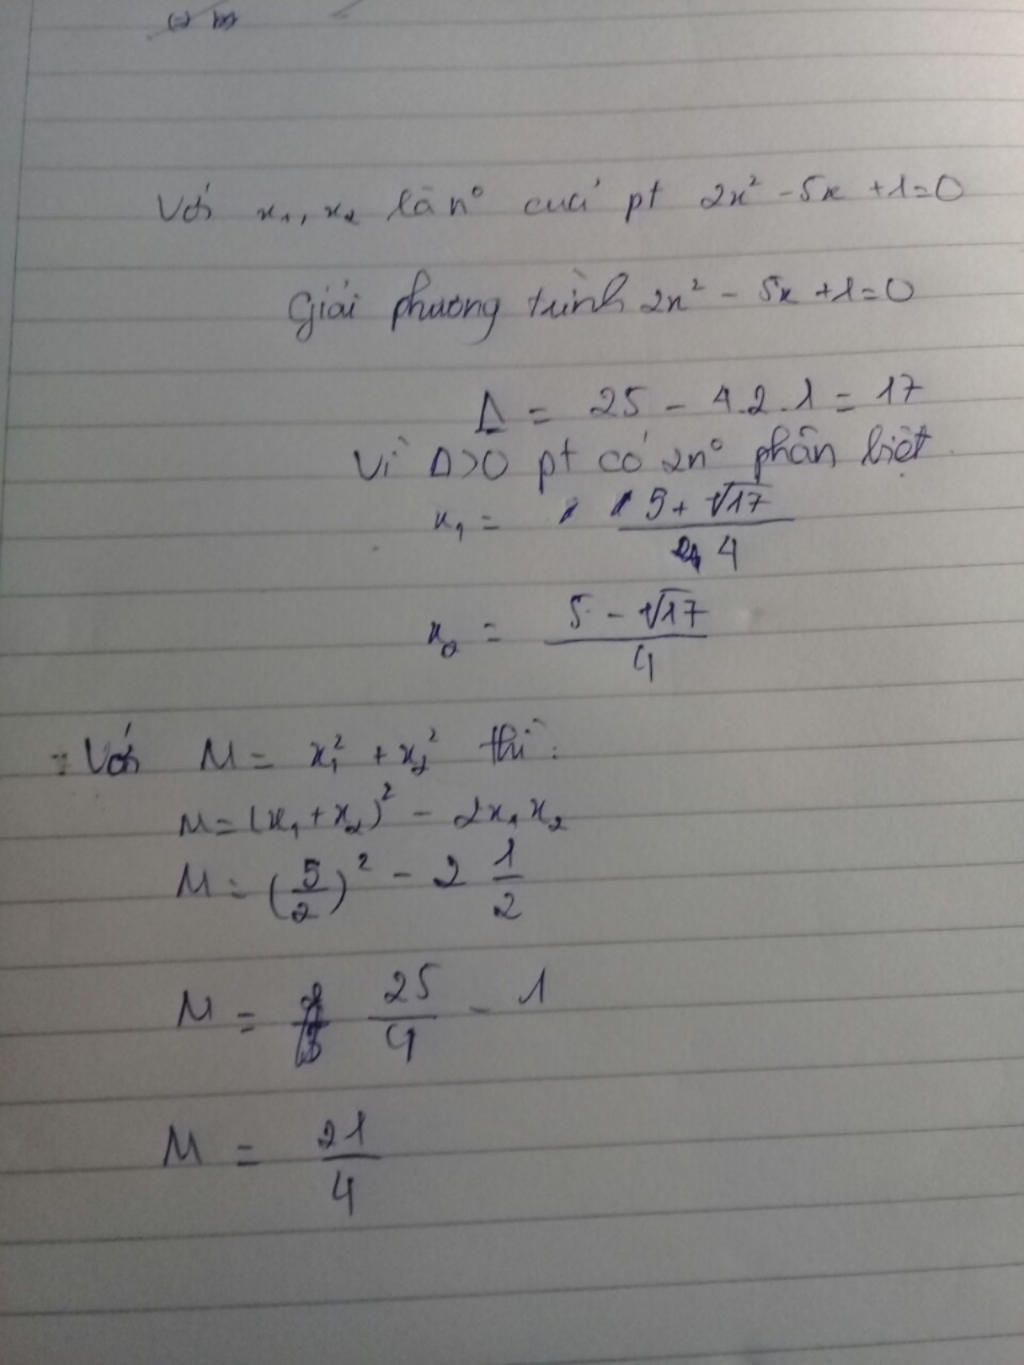 Với x₁, x₂ là n° của pt 2x² - 5x + 1 = 0
Giải phương trình 2x² - 5x + 1 = 0
Δ = 25 - 4.2.1 = 17
Vì Δ>0 pt có 2n° phân biệt
x₁ = (5 + √17)/4
x₂ = (5 - √17)/4
Với M = x₁² + x₂² thì:
M = (x₁ + x₂)² - 2x₁x₂
M = (5/2)² - 2 1/2
M = 25/4 - 1
M = 21/4